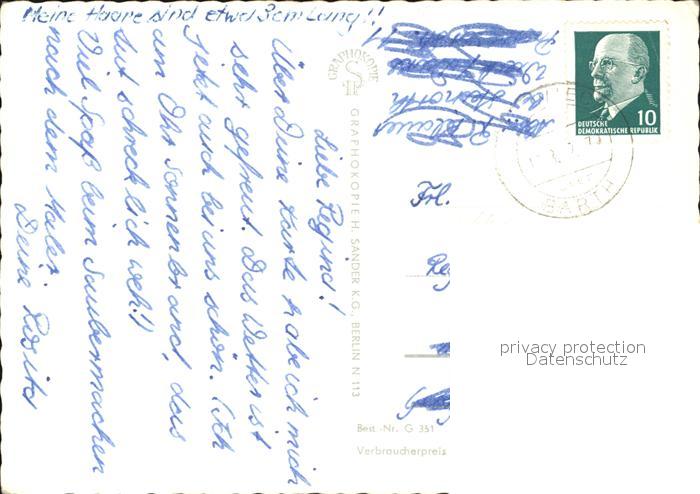 Meine Haare sind etwa 3cm lang!!
Liebe Regina!
Über Deine Karte habe ich mich
sehr gefreut. Das Wetter ist
jetzt auch bei uns schön. (Ich
am Ohr Sonnenbrand, das
tut schrecklich weh!)
Viel Spaß beim Saubermachen
nach dem Maler.
Deine Rosita
GRAPHOKOPIE
GRAPHOKOPIE H. SANDER K.G., BERLIN N 113
10
DEUTSCHE
DEMOKRATISCHE REPUBLIK
BARTH
Frl.
Re
privacy protection
Datenschutz
Best.-Nr. G 351
Verbraucherpreis